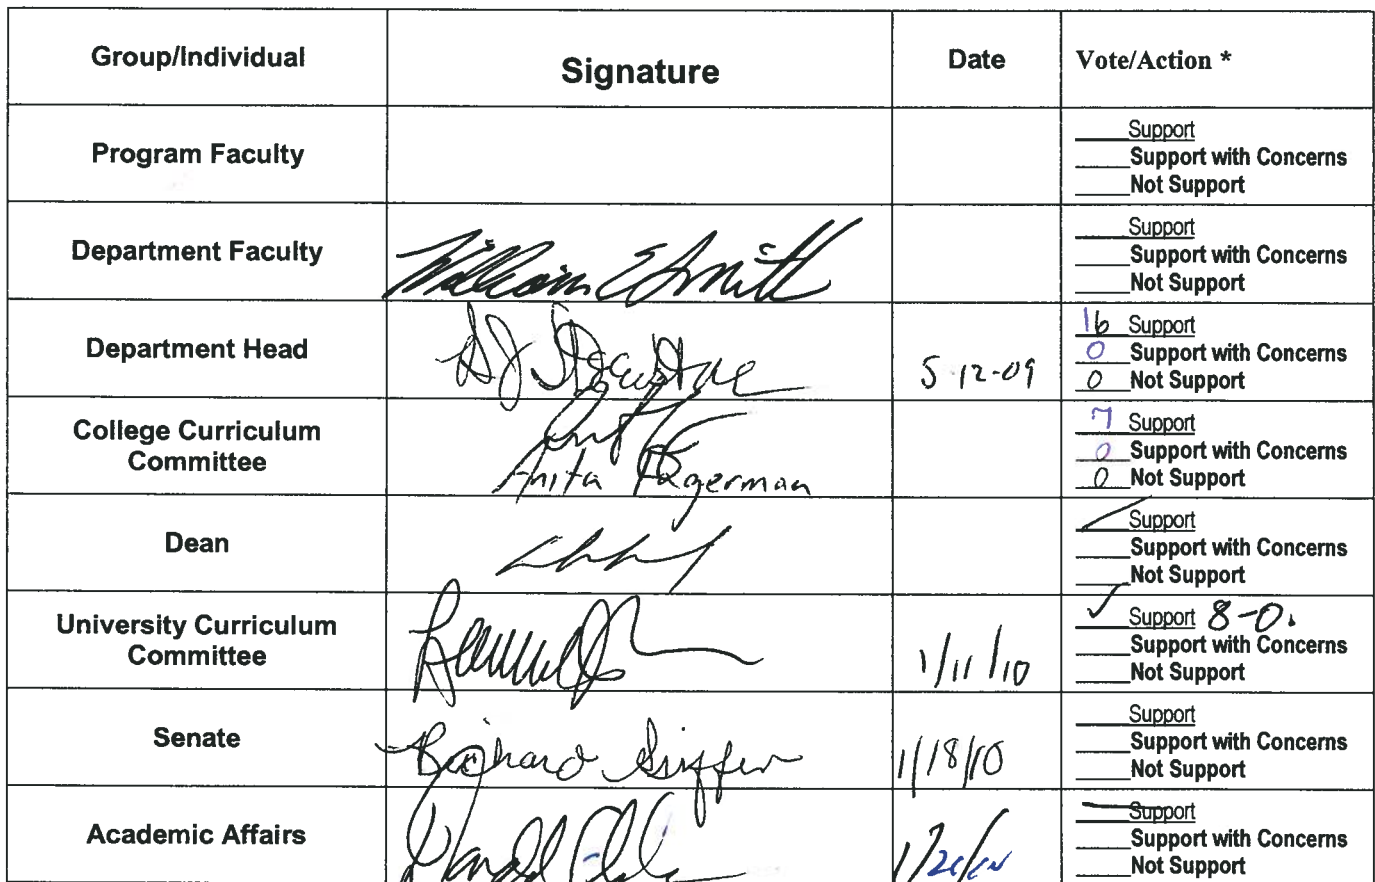 Group/Individual Signature Date Vote/Action *
Program Faculty
____Support
____Support with Concerns
____Not Support
Department Faculty William E Smith
____Support
____Support with Concerns
____Not Support
Department Head 5-12-09
16 Support
0 Support with Concerns
0 Not Support
College Curriculum
Committee
Anita Fagerman
7 Support
0 Support with Concerns
0 Not Support
Dean
____Support
____Support with Concerns
____Not Support
University Curriculum
Committee
1/11/10
✓ Support 8-0.
____Support with Concerns
____Not Support
Senate Richard Griffin 1/18/10
____Support
____Support with Concerns
____Not Support
Academic Affairs
____Support
____Support with Concerns
____Not Support